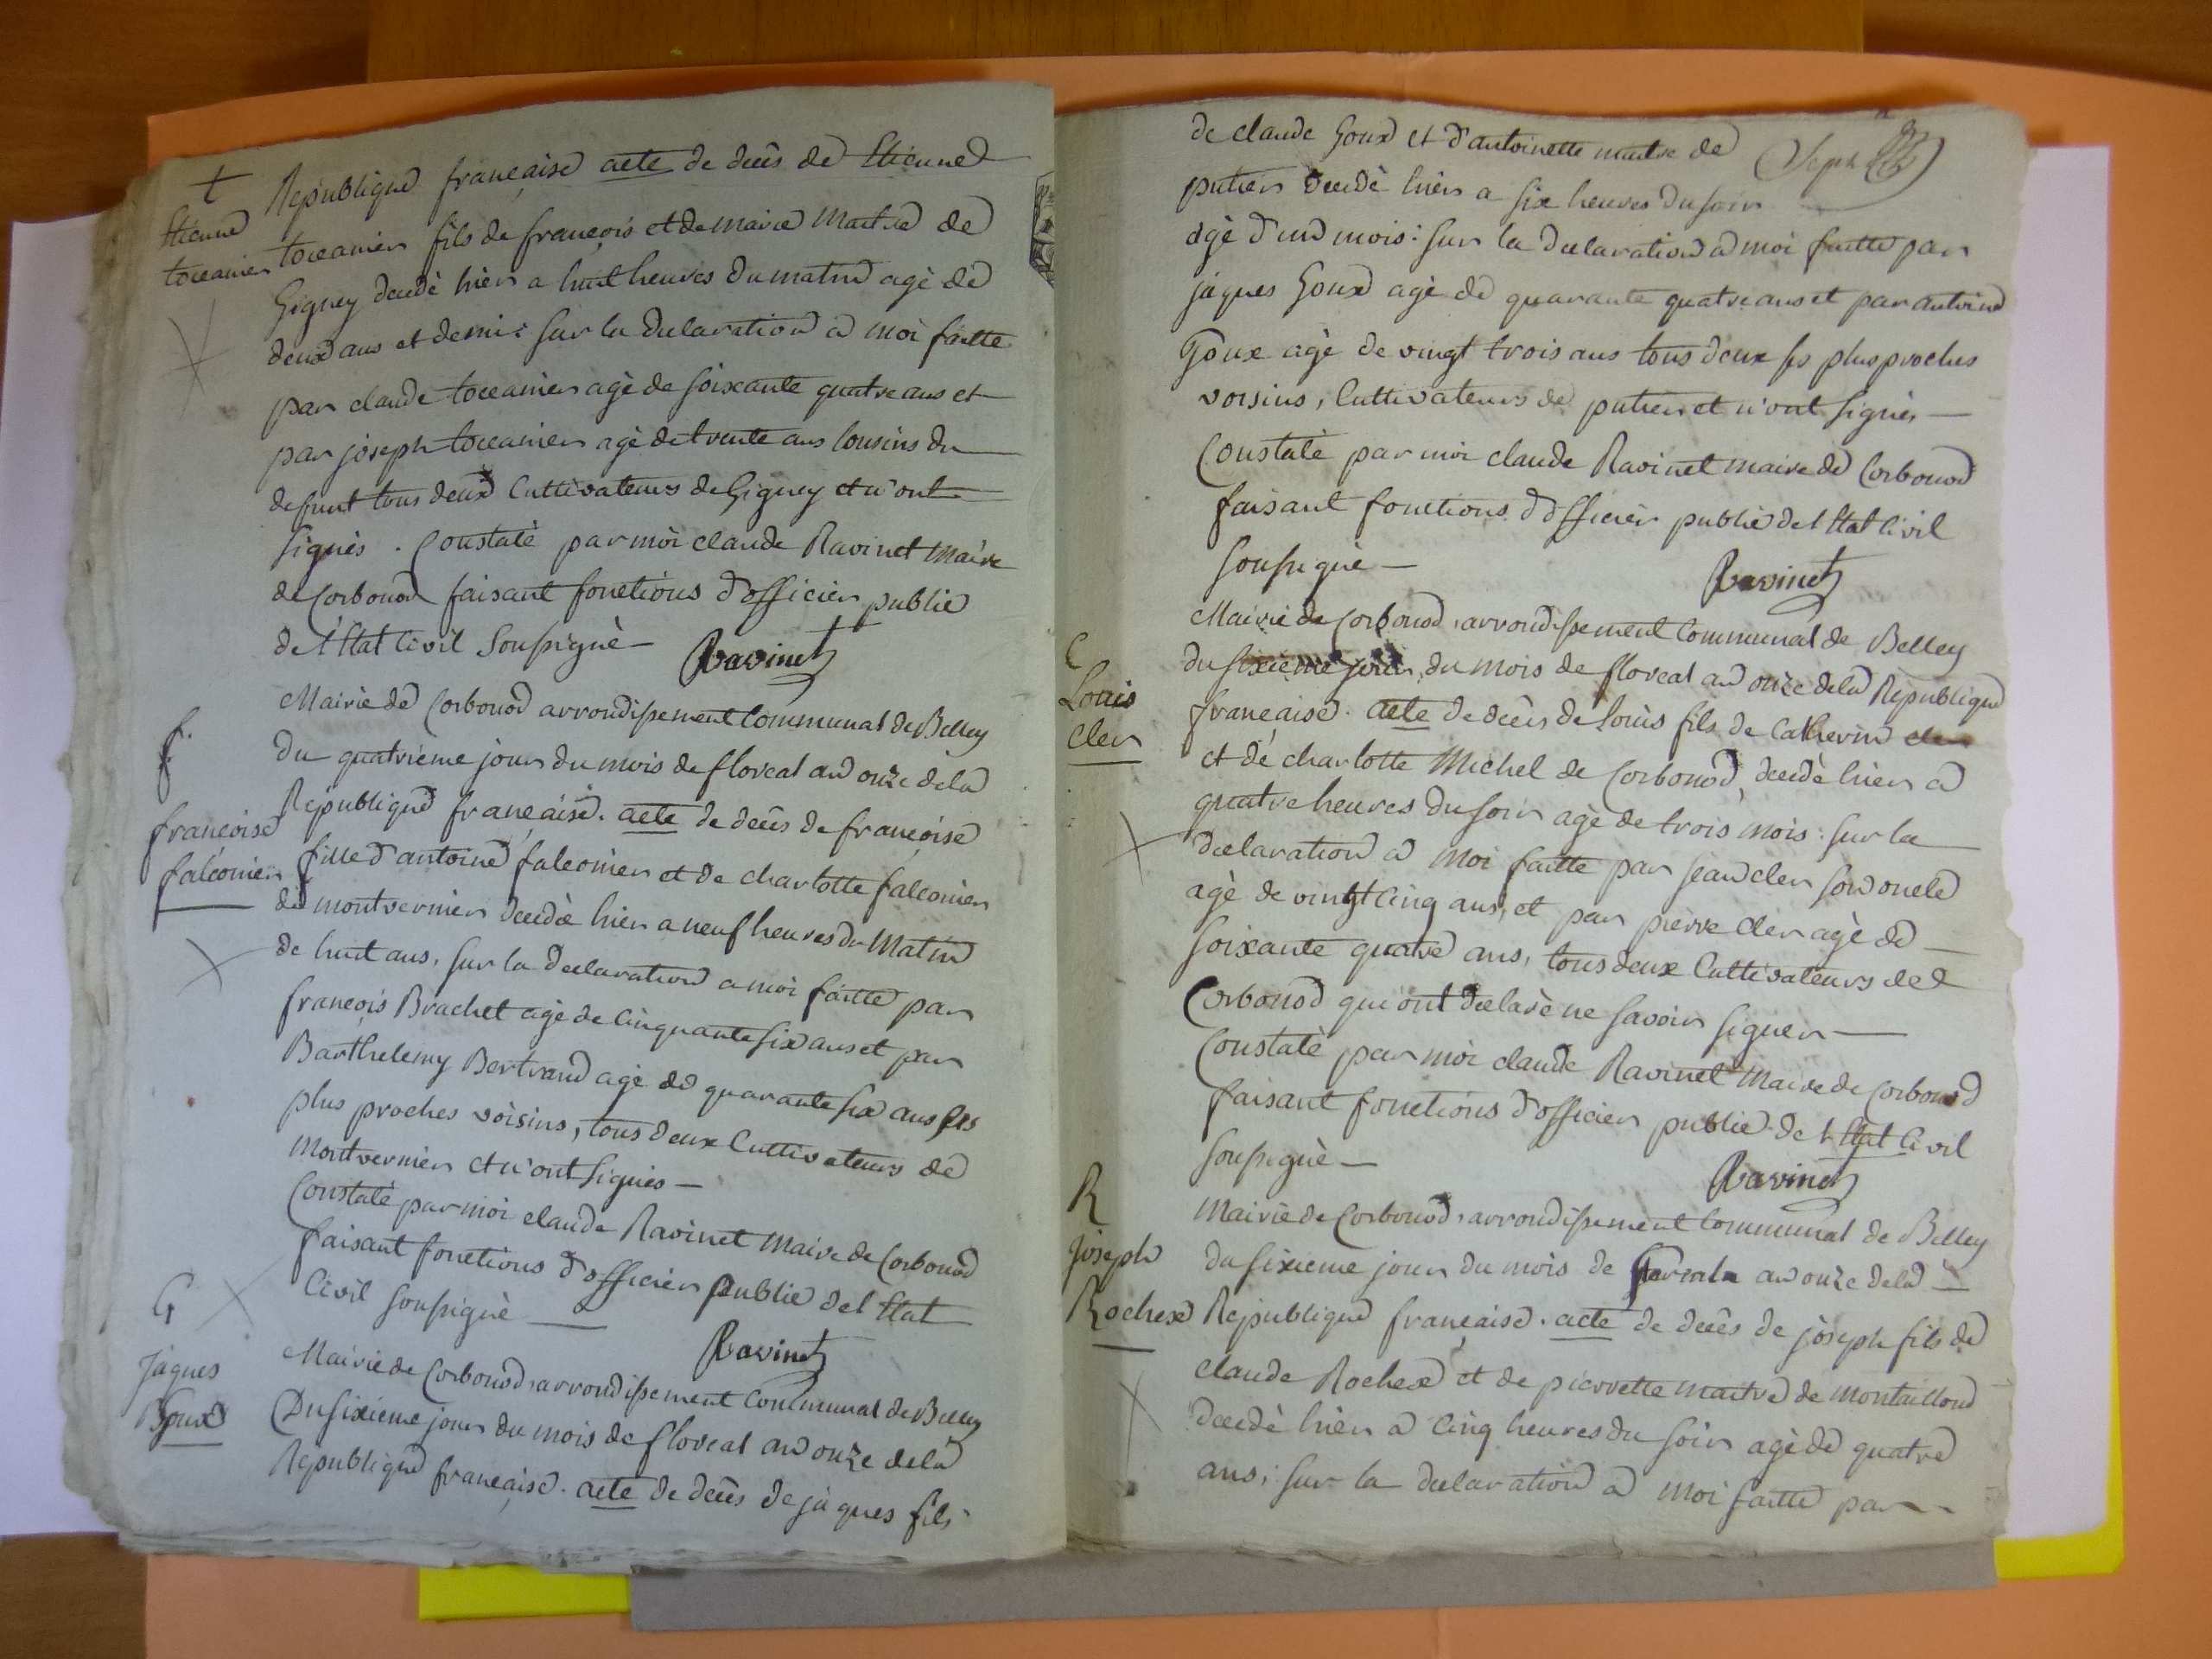 t
Etienne
toccanier
Republique française acte de decès de Etienne
toccanier fils de françois et de marie Maitre de
Gigney decedè hièr a huit heures du matin agè de
deux ans et demi : sur la declaration a moi faitte
par claude toccanier agè de soixante quatre ans et
par joseph toccanier agè de trente ans Cousins du
defunt tous deux Cultivateurs de Gigney et n'ont
signès . Constatè par moi claude Ravinet Maire
de Corbonod faisant fonctions d'officier public
de l'Etat Civil Soussignè —
Ravinet
f.
francoise
falconier
Mairie de Corbonod arrondissement Communal de Belley
du quatrieme jour du mois de floreal an onze de la
Republique française. acte de decès de françoise
fille d'antoine falconier et de charlotte falconier
de montvernier decedèe hier a neuf heures du Matin
de huit ans, sur la declaration a moi faitte par
françois Brachet agè de Cinquante six ans et par
Barthelemy Bertrand agè de quarante six ans ses
plus proches voisins, tous deux Cultivateurs de
Montvernier et n'ont signès —
Constatè par moi claude Ravinet Maire de Corbonod
faisant fonctions d'officier public de l'Etat
Civil soussignè —
Ravinet
G
Jaques
Goux
Mairie de Corbonod, arrondissement Communal de Belley
Du sixieme jour du mois de floreal an onze de la
Republique française. acte de decès de jaques fils
de claude Goux et d'antoinette maitre de
putier decedè hièr a six heures du soir
agè d'un mois : sur la declaration a moi faitte par
jaques Goux agè de quarante quatre ans et par antoine
Goux agè de vingt trois ans tous deux ses plus proches
voisins, Cultivateurs de putier et n'ont signès —
Constatè par moi claude Ravinet maire de Corbonod
faisant fonctions d'officier public de l'Etat Civil
soussignè —
Ravinet
C
Louis
Cler
Mairie de Corbonod, arrondissement Communal de Belley
du sixieme jour, du mois de floreal an onze de la Republique
française. acte de decès de Louis fils de Catherin cler
et de charlotte Michel de Corbonod, decedè hièr a
quatre heures du soir agè de trois mois : sur la
declaration a Moi faitte par jean cler son oncle
agè de vingt Cinq ans, et par pierre Cler agè de
soixante quatre ans, tous deux Cultivateurs de
Corbonod qui ont declarè ne savoir signer —
Constatè par moi claude Ravinet Maire de Corbonod
faisant fonctions d'officier public de l'Etat Civil
soussignè —
Ravinet
R
Joseph
Rochex
Mairie de Corbonod, arrondissement Communal de Belley
du sixieme jour du mois de an onze de la
Republique française. acte de decès de joseph fils de
claude Rochex et de pierrette maitre de Montaillou
decedè hièr a Cinq heures du soir agè de quatre
ans, sur la declaration a Moi faitte par